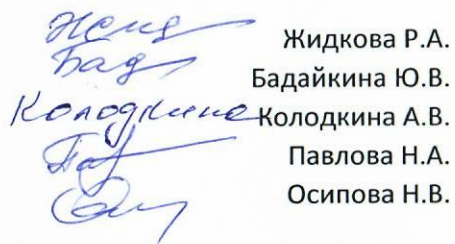 Жидкова Р.А.
Бад Бадайкина Ю.В.
Колодкина Колодкина А.В.
Павлова Н.А.
Осипова Н.В.